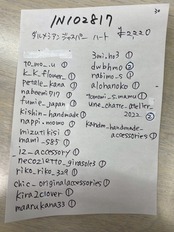 30
IN102817
ダルメシアンジャスパー ハート ¥2220
to_mo_u ①
k_k_flower_ ①
petale_kana ③
naheem717 ①
fumie_japan ①
kishin_handmade ①
nappi_momo ①
mizutikisi ①
mami_585 ①
iz_accessory ①
necoziletto_girasole3 ①
riko_riko_329 ①
chic_originalaccessories ①
kira2clover ①
maarukana33 ①
3mi_hr3 ①
dwbhmo ②
rabimo_s ①
alohanoko ①
tomomi_s.mamu ①
une_charte_atelier_
2022 ②
kanon_handmade_
accessories ①